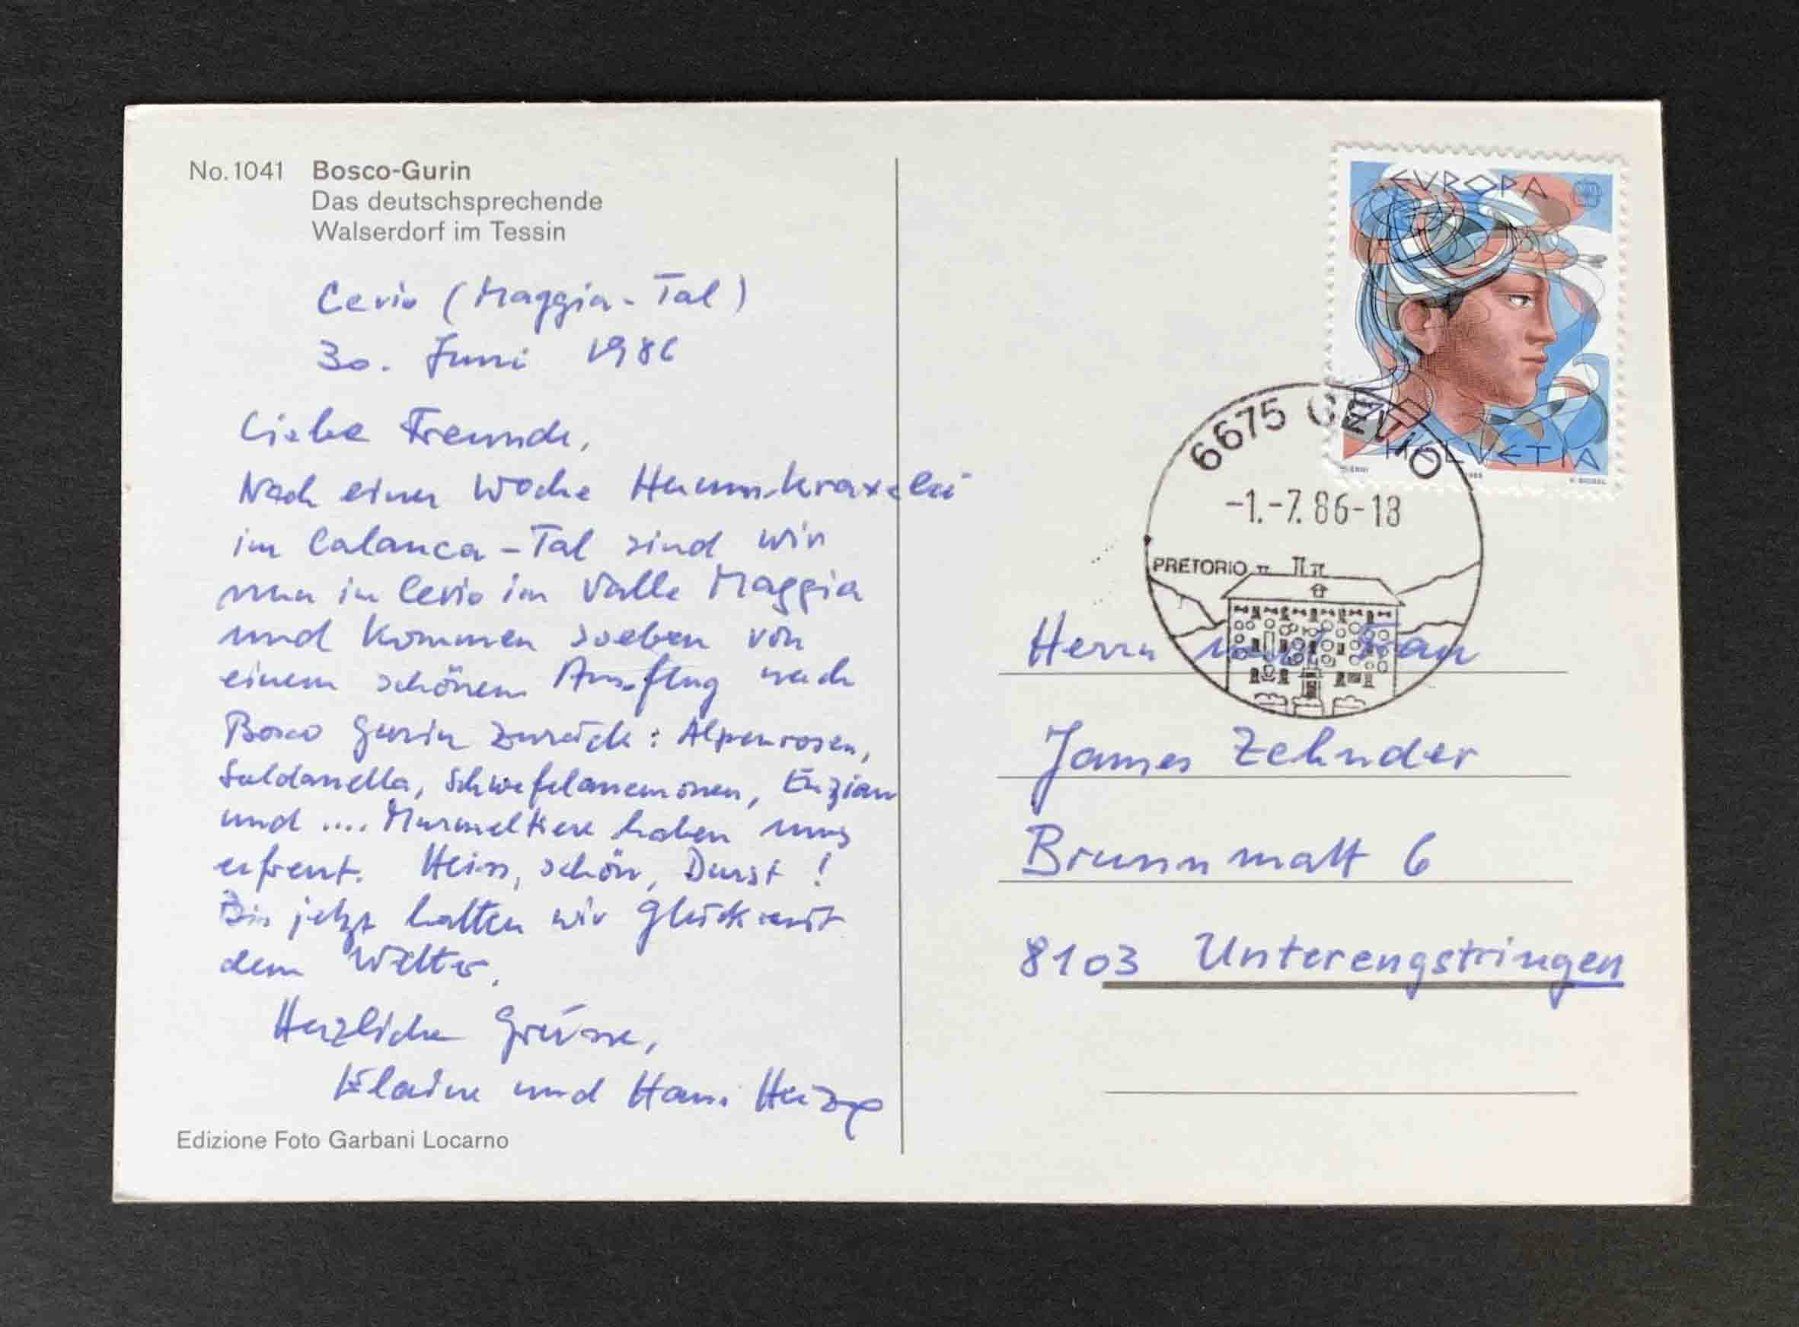 No. 1041 Bosco-Gurin
Das deutschsprechende
Walserdorf im Tessin
Cevio (Maggia-Tal)
30. Juni 1986
Liebe Freunde,
Nach einer Woche Herumkraxelei
im Calanca-Tal sind wir
nun in Cevio im Valle Maggia
und kommen soeben von
einem schönen Ausflug nach
Bosco Gurin zurück: Alpenrosen,
Soldanella, Schwefelanemonen, Enzian
und .... Murmeltiere haben uns
erfreut. Heiss, schön, Durst!
Bis jetzt hatten wir Glück mit
dem Wetter.
Herzliche Grüsse,
Elaine und Hans Herzog
Edizione Foto Garbani Locarno
EUROPA
HELVETIA
6675 CEVIO
-1.-7.86-18
PRETORIO
Herrn und Frau
James Zehnder
Brunnmatt 6
8103 Unterengstringen